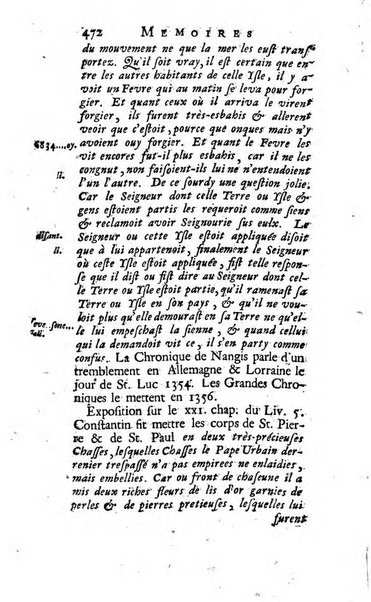 472 MEMOIRES
du mouvement ne que la mer les eust trans-
portez. Qu'il soit vray, il est certain que en-
tre les autres habitants de celle Isle, il y a-
voit un Fevre qui au matin se leva pour for-
gier. Et quant ceux où il arriva le virent
forgier, ils furent très-esbahis & allerent
veoir que c'estoit, pource que onques mais n'y
avoient ouy forgier. Et quant le Fevre les
vit encores fut-il plus esbahis, car il ne les
congnut, non faisoient-ils ne n'entendoient
l'un l'autre. De ce sourdy une question jolie.
Car le Seigneur dont celle Terre ou Isle &
gens estoient partis les requeroit comme siens
& reclamoit avoir Seignourie sus eulx. Le
disant.
Seigneur ou cette Isle estoit appliquée disoit
ll.
que à lui appartenoit, finalement le Seigneur
où ceste Isle estoit appliquée fist telle respon-
se que il dist ou fist dire au Seigneur dont cel-
le Terre ou Isle estoit partie, qu'il ramenast sa
Terre ou Isle en son pays, & qu'il ne vou-
loit plus qu'elle demourast en sa Terre ne qu'el-
le lui empeschast la sienne, & quand cellui
qui la demandoit vit ce, il s'en party comme
confus. La Chronique de Nangis parle d'un
tremblement en Allemagne & Lorraine le
jour de St. Luc 1354. Les Grandes Chro-
niques le mettent en 1356.
Exposition sur le XXI. chap. du Liv. 5.
Constantin fit mettre les corps de St. Pier-
re & de St. Paul en deux très-précieuses
Chasses, lesquelles Chasses le Pape Urbain der-
renier trespassé n'a pas empirees ne enlaidies,
mais embellies. Car ou front de chascune il a
mis deux riches fleurs de lis d'or garnies de
perles & de pierres pretieuses, lesquelles lui
furent